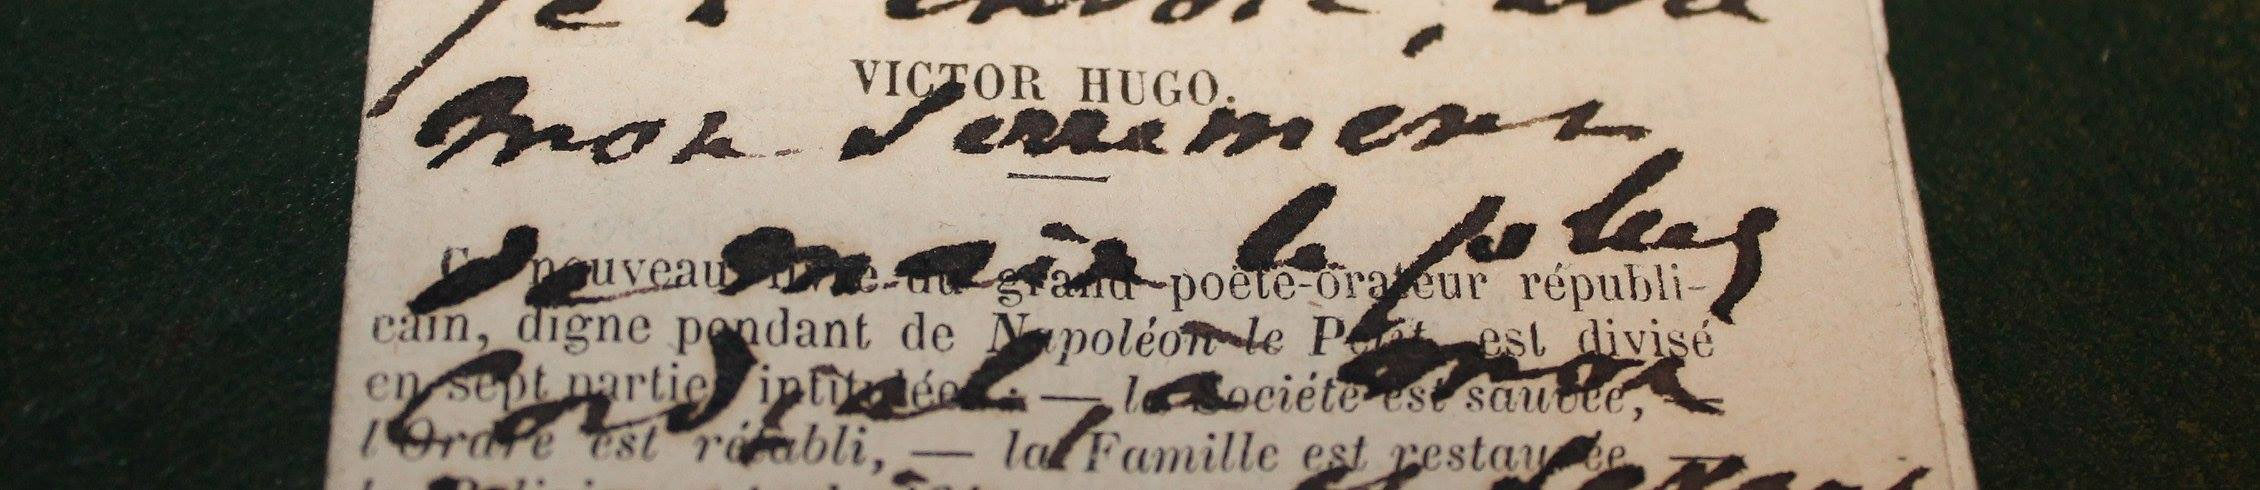 je t'envoie, avec
VICTOR HUGO.
mon serrement
de main le plus
Ce nouveau livre du grand poëte-orateur républi-
cain, digne pendant de Napoléon le Petit, est divisé
cordial, à mon
en sept parties intitulées : — la Société est sauvée, —
l'Ordre est rétabli, — la Famille est restaurée, —